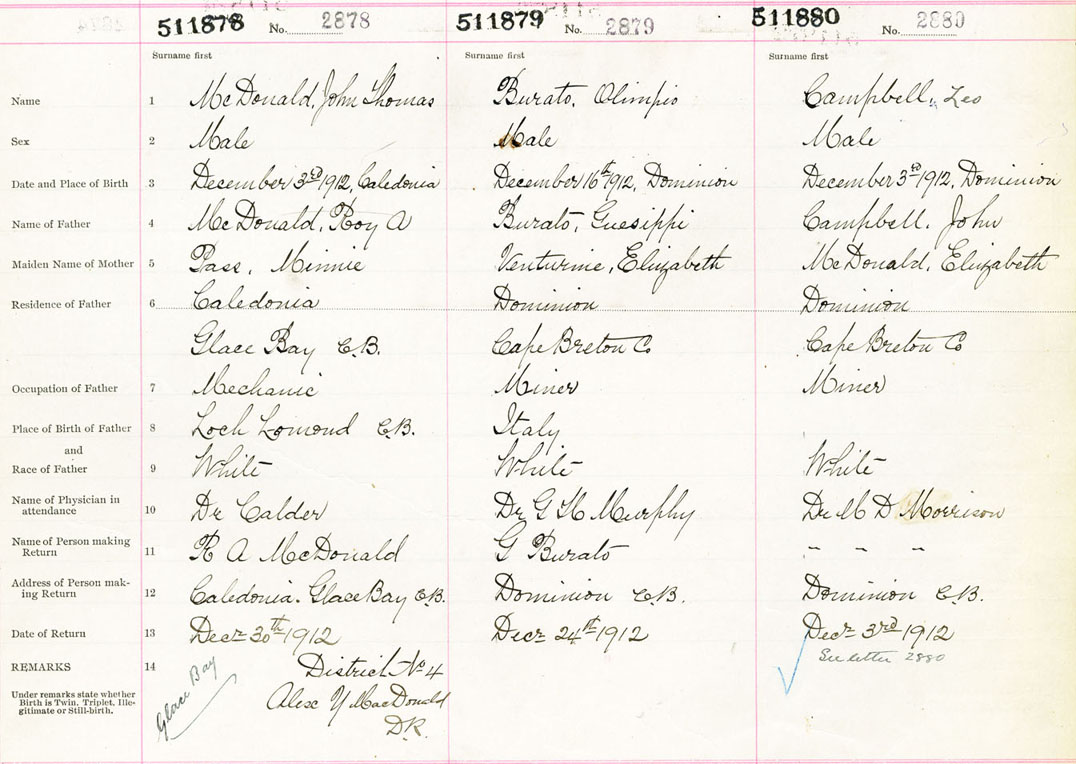 511878 No. 2878 511879 No. 2879 511880 No. 2880
Surname first Surname first Surname first
Name 1 McDonald, John Thomas Burato, Olimpio Campbell, Leo
Sex 2 Male Male Male
Date and Place of Birth 3 Desember 3rd 1912, Caledonia December 16th 1912, Dominion December 3rd 1912, Dominion
Name of Father 4 McDonald, Roy A Burato, Guesippi Campbell, John
Maiden Name of Mother 5 Pass, Minnie Venturine, Elizabeth McDonald, Elizabeth
Residence of Father 6 Caledonia Dominion Dominion
Glace Bay C.B. Cape Breton Co Cape Breton Co
Occupation of Father 7 Mechanic Miner Miner
Place of Birth of Father 8 Loch Lomond C.B. Italy
and
Race of Father 9 White White White
Name of Physician in
attendance 10 Dr Calder Dr G H Murphy Dr M D Morrison
Name of Person making
Return 11 R A McDonald G Burato " " "
Address of Person mak-
ing Return 12 Caledonia. Glace Bay C.B. Dominion C.B. Dominion C.B.
Date of Return 13 Decr 30th 1912 Decr 24th 1912 Decr 3rd 1912
REMARKS 14 Glace Bay District No 4 See letter 2880
Under remarks state whether
Birth is Twin, Triplet, Ille-
gitimate or Still-birth.
Alex Y MacDonald
D.R.